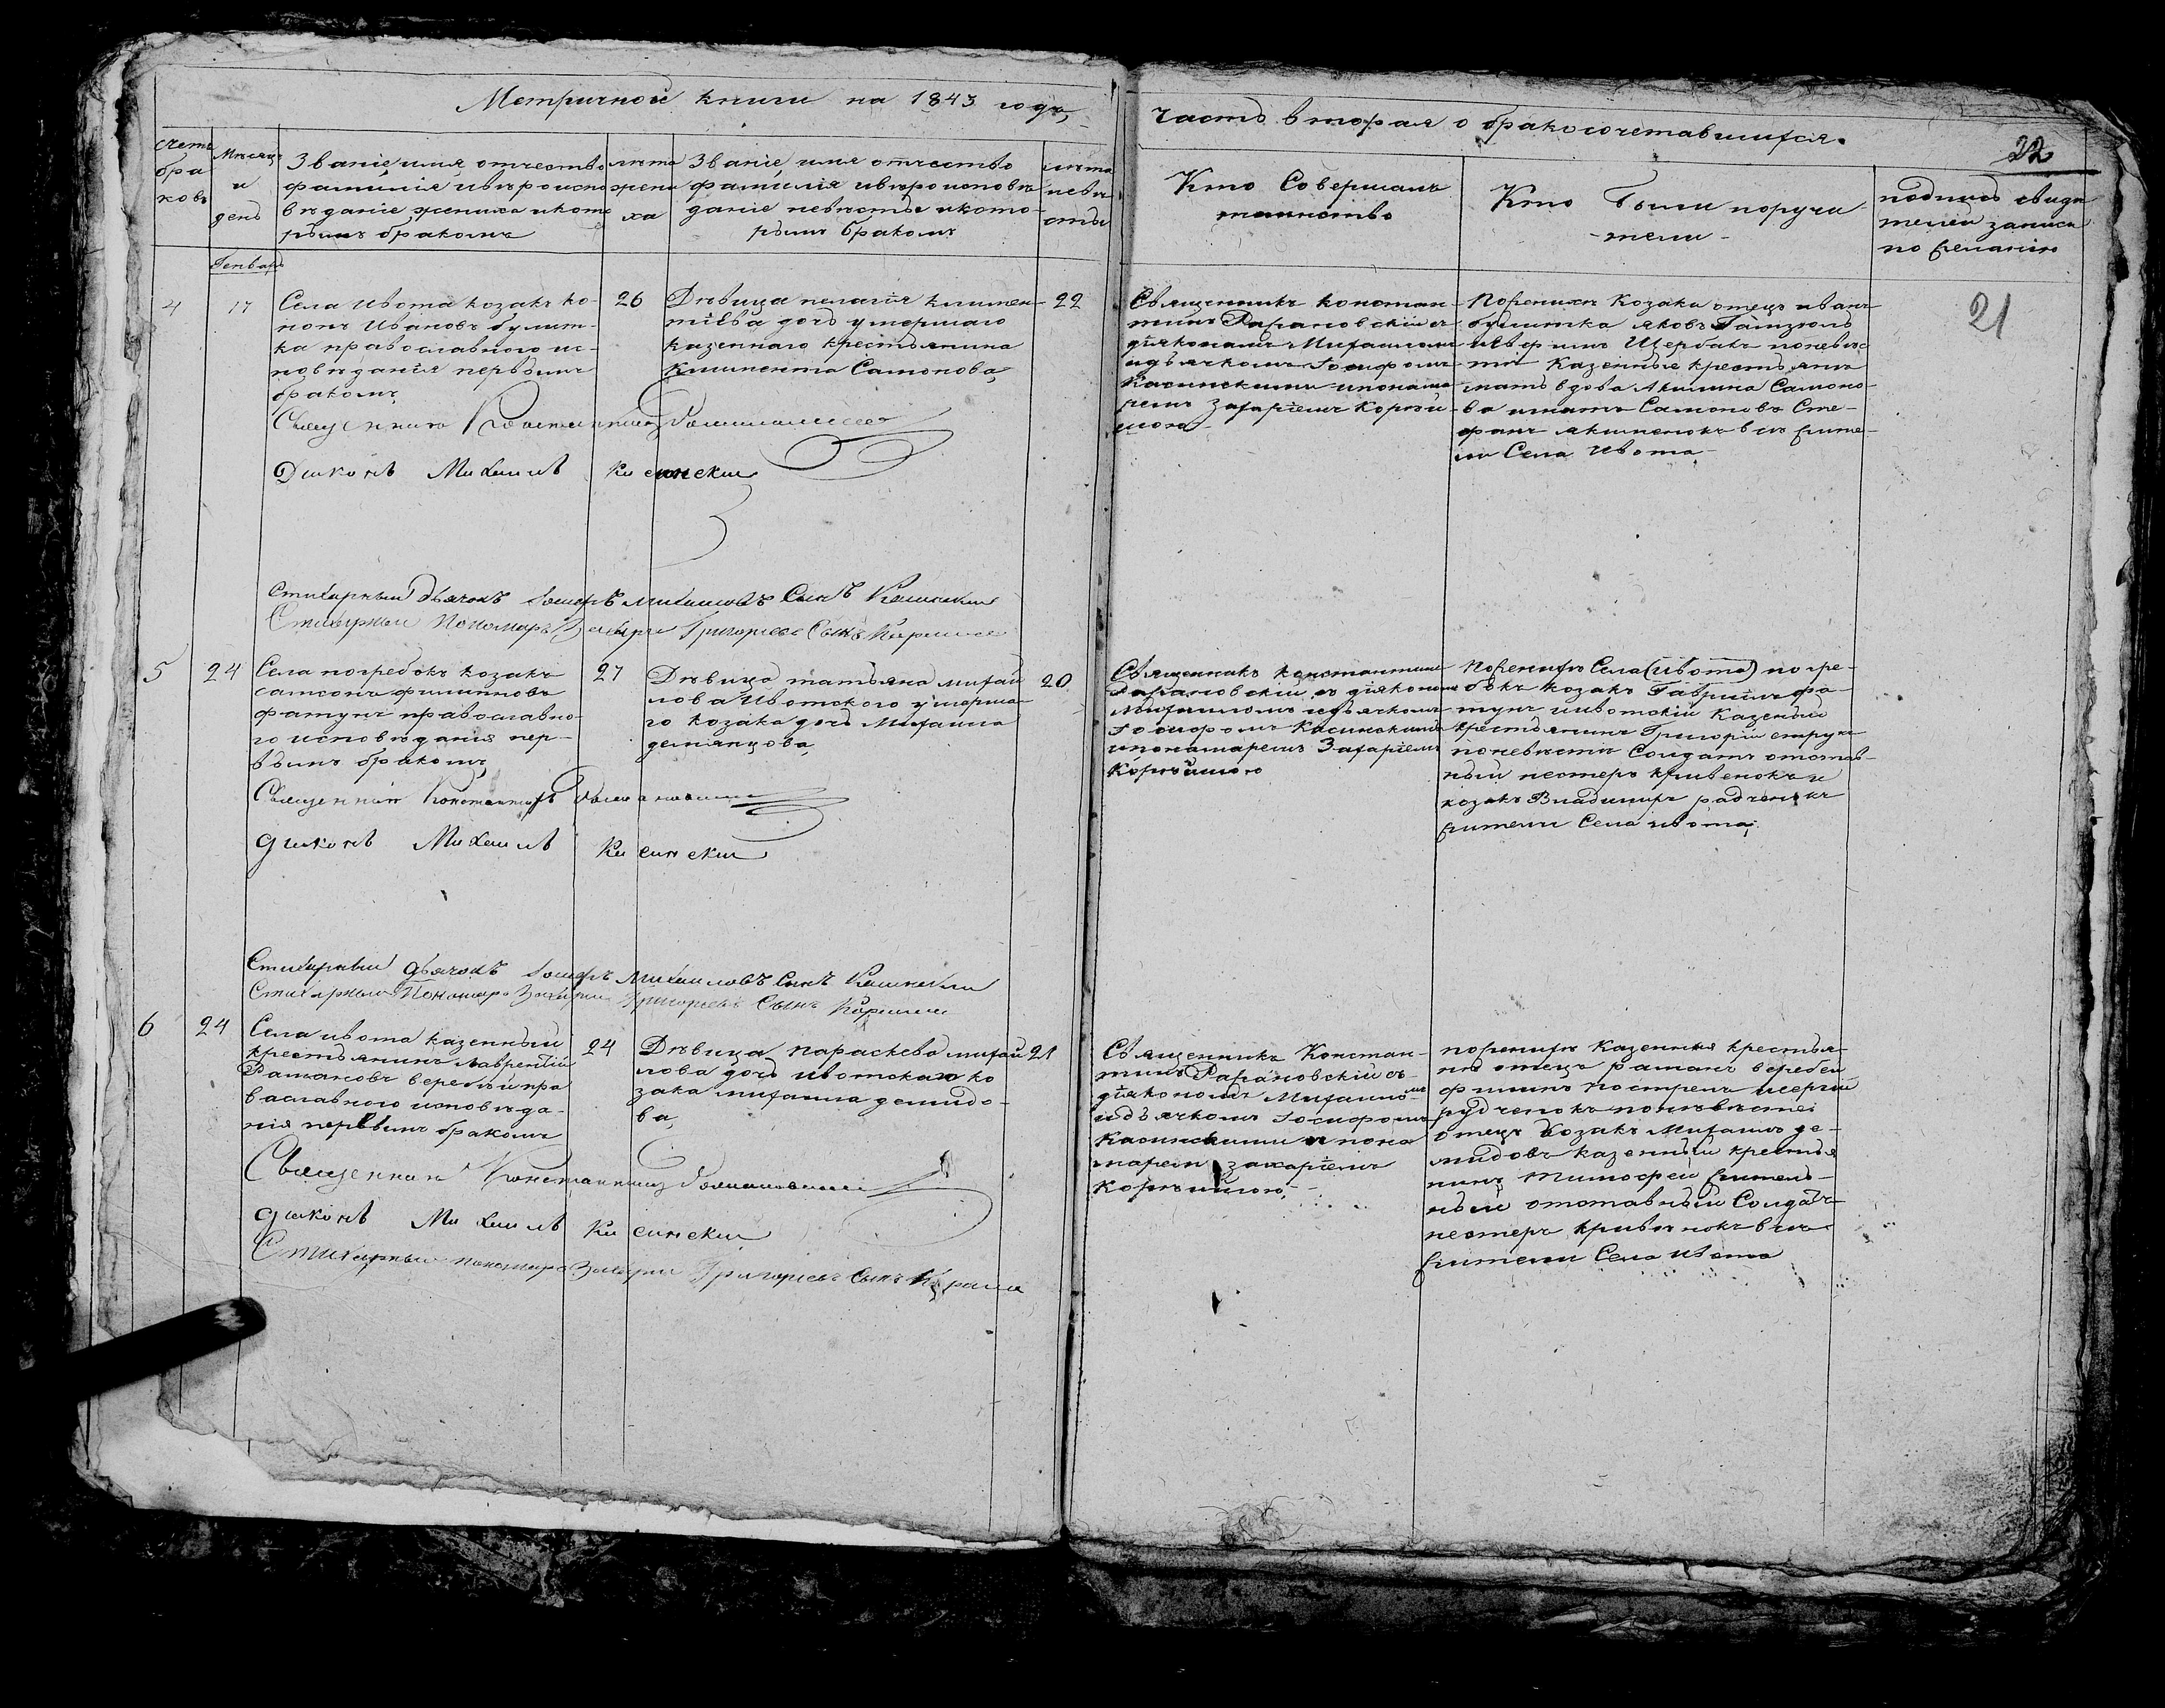 Метричной книги на 1843 годъ,
часть вторая о бракосочетавшихся.
22
21
счетъ бра ковъ
Мѣсяцъ и день
Званіе, имя, отчество
фамилія и вѣроиспо
вѣданіе жениха и кото
рымъ бракомъ
лѣта жени ха
Званіе, имя отчество
фамилія и вѣроисповѣ
даніе невѣсты и кото-
рымъ бракомъ
лѣта невѣ сты
Кто Совершалъ
таинство
Кто Были поручи-
-тели-
подпись свиде
телей записи
по желанію
Генварь
4
17
Села Ивота козакъ ко-
нонъ Ивановъ булит-
ка православного ис-
повѣданія первымъ
бракомъ
26
Дѣвица пелагія климен-
тіева дочь умершаго
казеннаго крестьянина
Климента Самонова,
22
Священникъ констан-
тинъ съ
діякономъ Михаиломъ
идьячкомъ Іосифомъ
Касинскими ипонама-
ремъ Захаріемъ
Поженихѣ Козаки отецъ иванъ
булитка яковъ
Щербакъ поневѣс-
тѣ Казенные крестьяне
мать вдова Акилина Самоно-
ва Самоновъ Сте-
фанъ всѣ жите-
ли Села Ивота
Священникъ Константинъ
Диконъ Михаилъ Касинский
Стихарный Дьячокъ Іосифъ Михаиловъ Сынъ Касинский
Стихарный Пономарь Захарий Григориевъ Сынъ
5
24
Села погребокъ козакъ
самсонъ филиповъ
фатунъ православно-
го исповѣданія пер-
вымъ бракомъ,
27
Дѣвица татьяна михай
лова Ивотского умерша-
го козака дочь Михаила
демянцова,
20
Священникъ константинъ
съ діякономъ
Михаиломъ идьячкомъ
Іосифомъ Касинскими
ипонамаремъ Захаріемъ
Поженихѣ Села (Ивота) погре-
бокъ козакъ Гавриилъ фа-
тунъ иивотскій Казеный
крестьянинъ Григорій
поневѣстѣ Солдатъ отстав-
ный нестеръ кривенокъ и
козакъ Владимиръ радченокъ
жители Села ивота,
Священникъ Константинъ
диконъ Михаилъ Касинский
Стихарный дьячокъ Іосифъ Михаиловъ Сынъ Касинский
Стихарный Пономарь Захарий Григориевъ Сынъ
6
24
Села ивота казенный
крестьянинъ лаврентій
Рамановъ веребей пра
вославного исповѣда-
нія первымъ бракомъ
24
Дѣвица параскева михай
лова дочь ивотскаго ко
зака михаила демидо-
ва,
21
Священникъ Констан-
тинъ съ
діякономъ Михаило-
мъ
идьячкомъ Іосифомъ
Касинскими и пона
маремъ захаріемъ
поженихѣ Казенныя крестья-
не отецъ раманъ веребей
филипъ пострелъ исергій
рудченокъ поневѣсте
отецъ Козакъ Михаилъ де-
мидовъ казенный крестья
нинъ тимофей
отставный Солдатъ
нестеръ кривенокъ всѣ
жители Села Ивота
Священникъ Константинъ
диконъ Михаилъ Касинский
Стихарный пономарь Захарий Григориевъ Сынъ